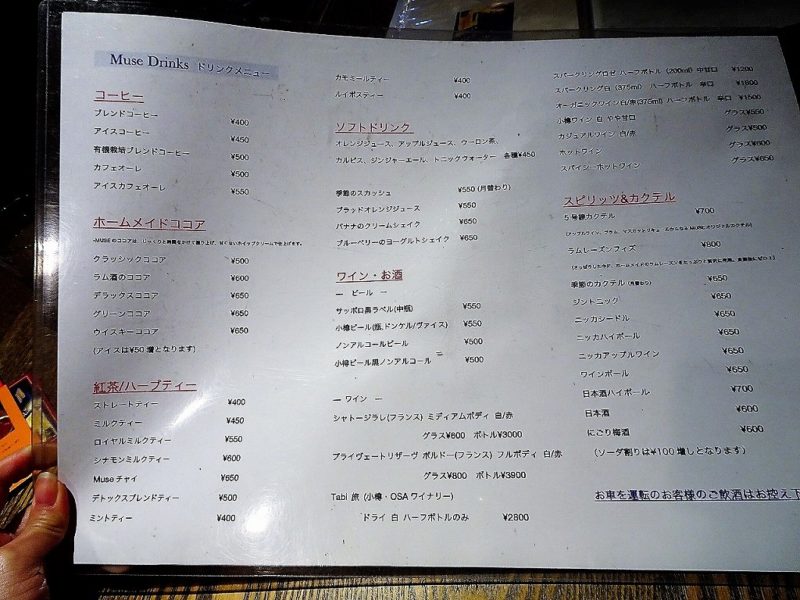 Muse Drinks ドリンクメニュー
コーヒー
ブレンドコーヒー ¥400
アイスコーヒー ¥450
有機栽培ブレンドコーヒー ¥500
カフェオーレ ¥500
アイスカフェオーレ ¥550
ホームメイドココア
-MUSEのココアは、じっくりと時間をかけて練り上げ、甘くないホイップクリームで仕上げます。
クラッシックココア ¥500
ラム酒のココア ¥600
デラックスココア ¥650
グリーンココア ¥650
ウイスキーココア ¥650
(アイスは¥50増となります)
紅茶/ハーブティー
ストレートティー ¥400
ミルクティー ¥450
ロイヤルミルクティー ¥550
シナモンミルクティー ¥600
Museチャイ ¥650
デトックスブレンドティー ¥500
ミントティー ¥400
カモミールティー ¥400
ルイボスティー ¥400
ソフトドリンク
オレンジジュース、アップルジュース、ウーロン茶、
カルピス、ジンジャーエール、トニックウォーター 各種¥450
季節のスカッシュ ¥550 (月替わり)
ブラッドオレンジジュース ¥550
バナナのクリームシェイク ¥650
ブルーベリーのヨーグルトシェイク ¥650
ワイン・お酒
― ビール ―
サッポロ黒ラベル(中瓶) ¥550
小樽ビール(瓶,ドンケル/ヴァイス) ¥550
ノンアルコールビール ¥500
小樽ビール黒ノンアルコール ¥500
― ワイン ―
シャトージラレ(フランス) ミディアムボディ 白/赤
グラス¥600 ボトル¥3000
プライヴェートリザーヴ ボルドー(フランス) フルボディ 白/赤
グラス¥800 ボトル¥3900
Tabi 旅 (小樽・OSAワイナリー)
ドライ 白 ハーフボトルのみ ¥2800
スパークリングロゼ ハーフボトル (200ml) 中甘口 ¥1200
スパークリング白 (375ml) ハーフボトル 辛口 ¥1800
オーガニックワイン白/赤(375ml) ハーフボトル 辛口 ¥1500
小樽ワイン 白 やや甘口 グラス¥550
カジュアルワイン 白/赤 グラス¥500
ホットワイン グラス¥600
スパイシーホットワイン グラス¥650
スピリッツ&カクテル
5号線カクテル ¥700
ラムレーズンフィズ ¥800
季節のカクテル (月替わり) ¥650
ジントニック ¥650
ニッカシードル ¥650
ニッカハイボール ¥650
ニッカアップルワイン ¥650
ワインボール ¥650
日本酒ハイボール ¥700
日本酒 ¥600
にごり梅酒 ¥600
(ソーダ割りは¥100増しとなります)
お車を運転のお客様のご飲酒はお控え下